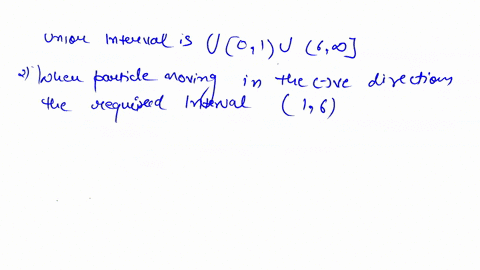 union Interval is U (0,1) U (6,∞]
2) When particle moving in the (-)ve directions
the required Interval (1,6)